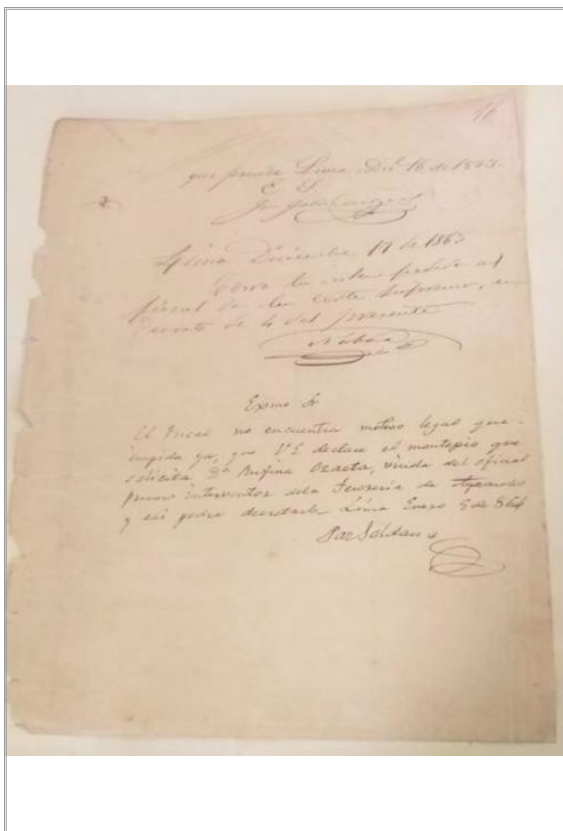 que precede Lima Dice 16 de 1863
E. S.
Juan
Lima Diciembre 17 de 1863
Corra la vista pedida al
fiscal de la Corte Suprema, en
decreto de 4 del presente
Exmo Sr
El Fiscal no encuentra motivo legal que
impida ya, que V E declare el montepio que
solicita Da Rufina, viuda del oficial
primo interventor de la Tesoreria de Ayacucho
y asi podra decretarlo Lima Enero 5 de 864
Paz Soldan